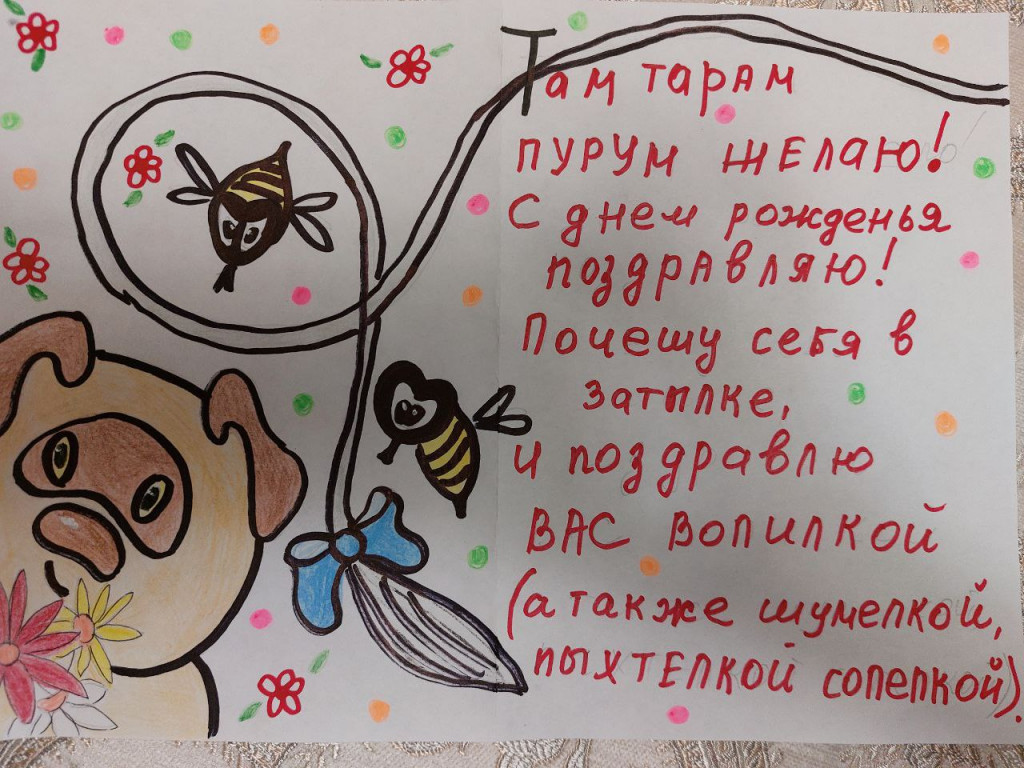 Там тарам
пурум желаю!
С днем рожденья
поздравляю!
Почешу себя в
затылке,
и поздравлю
ВАС вопилкой
(а также шумелкой,
пыхтелкой сопелкой).